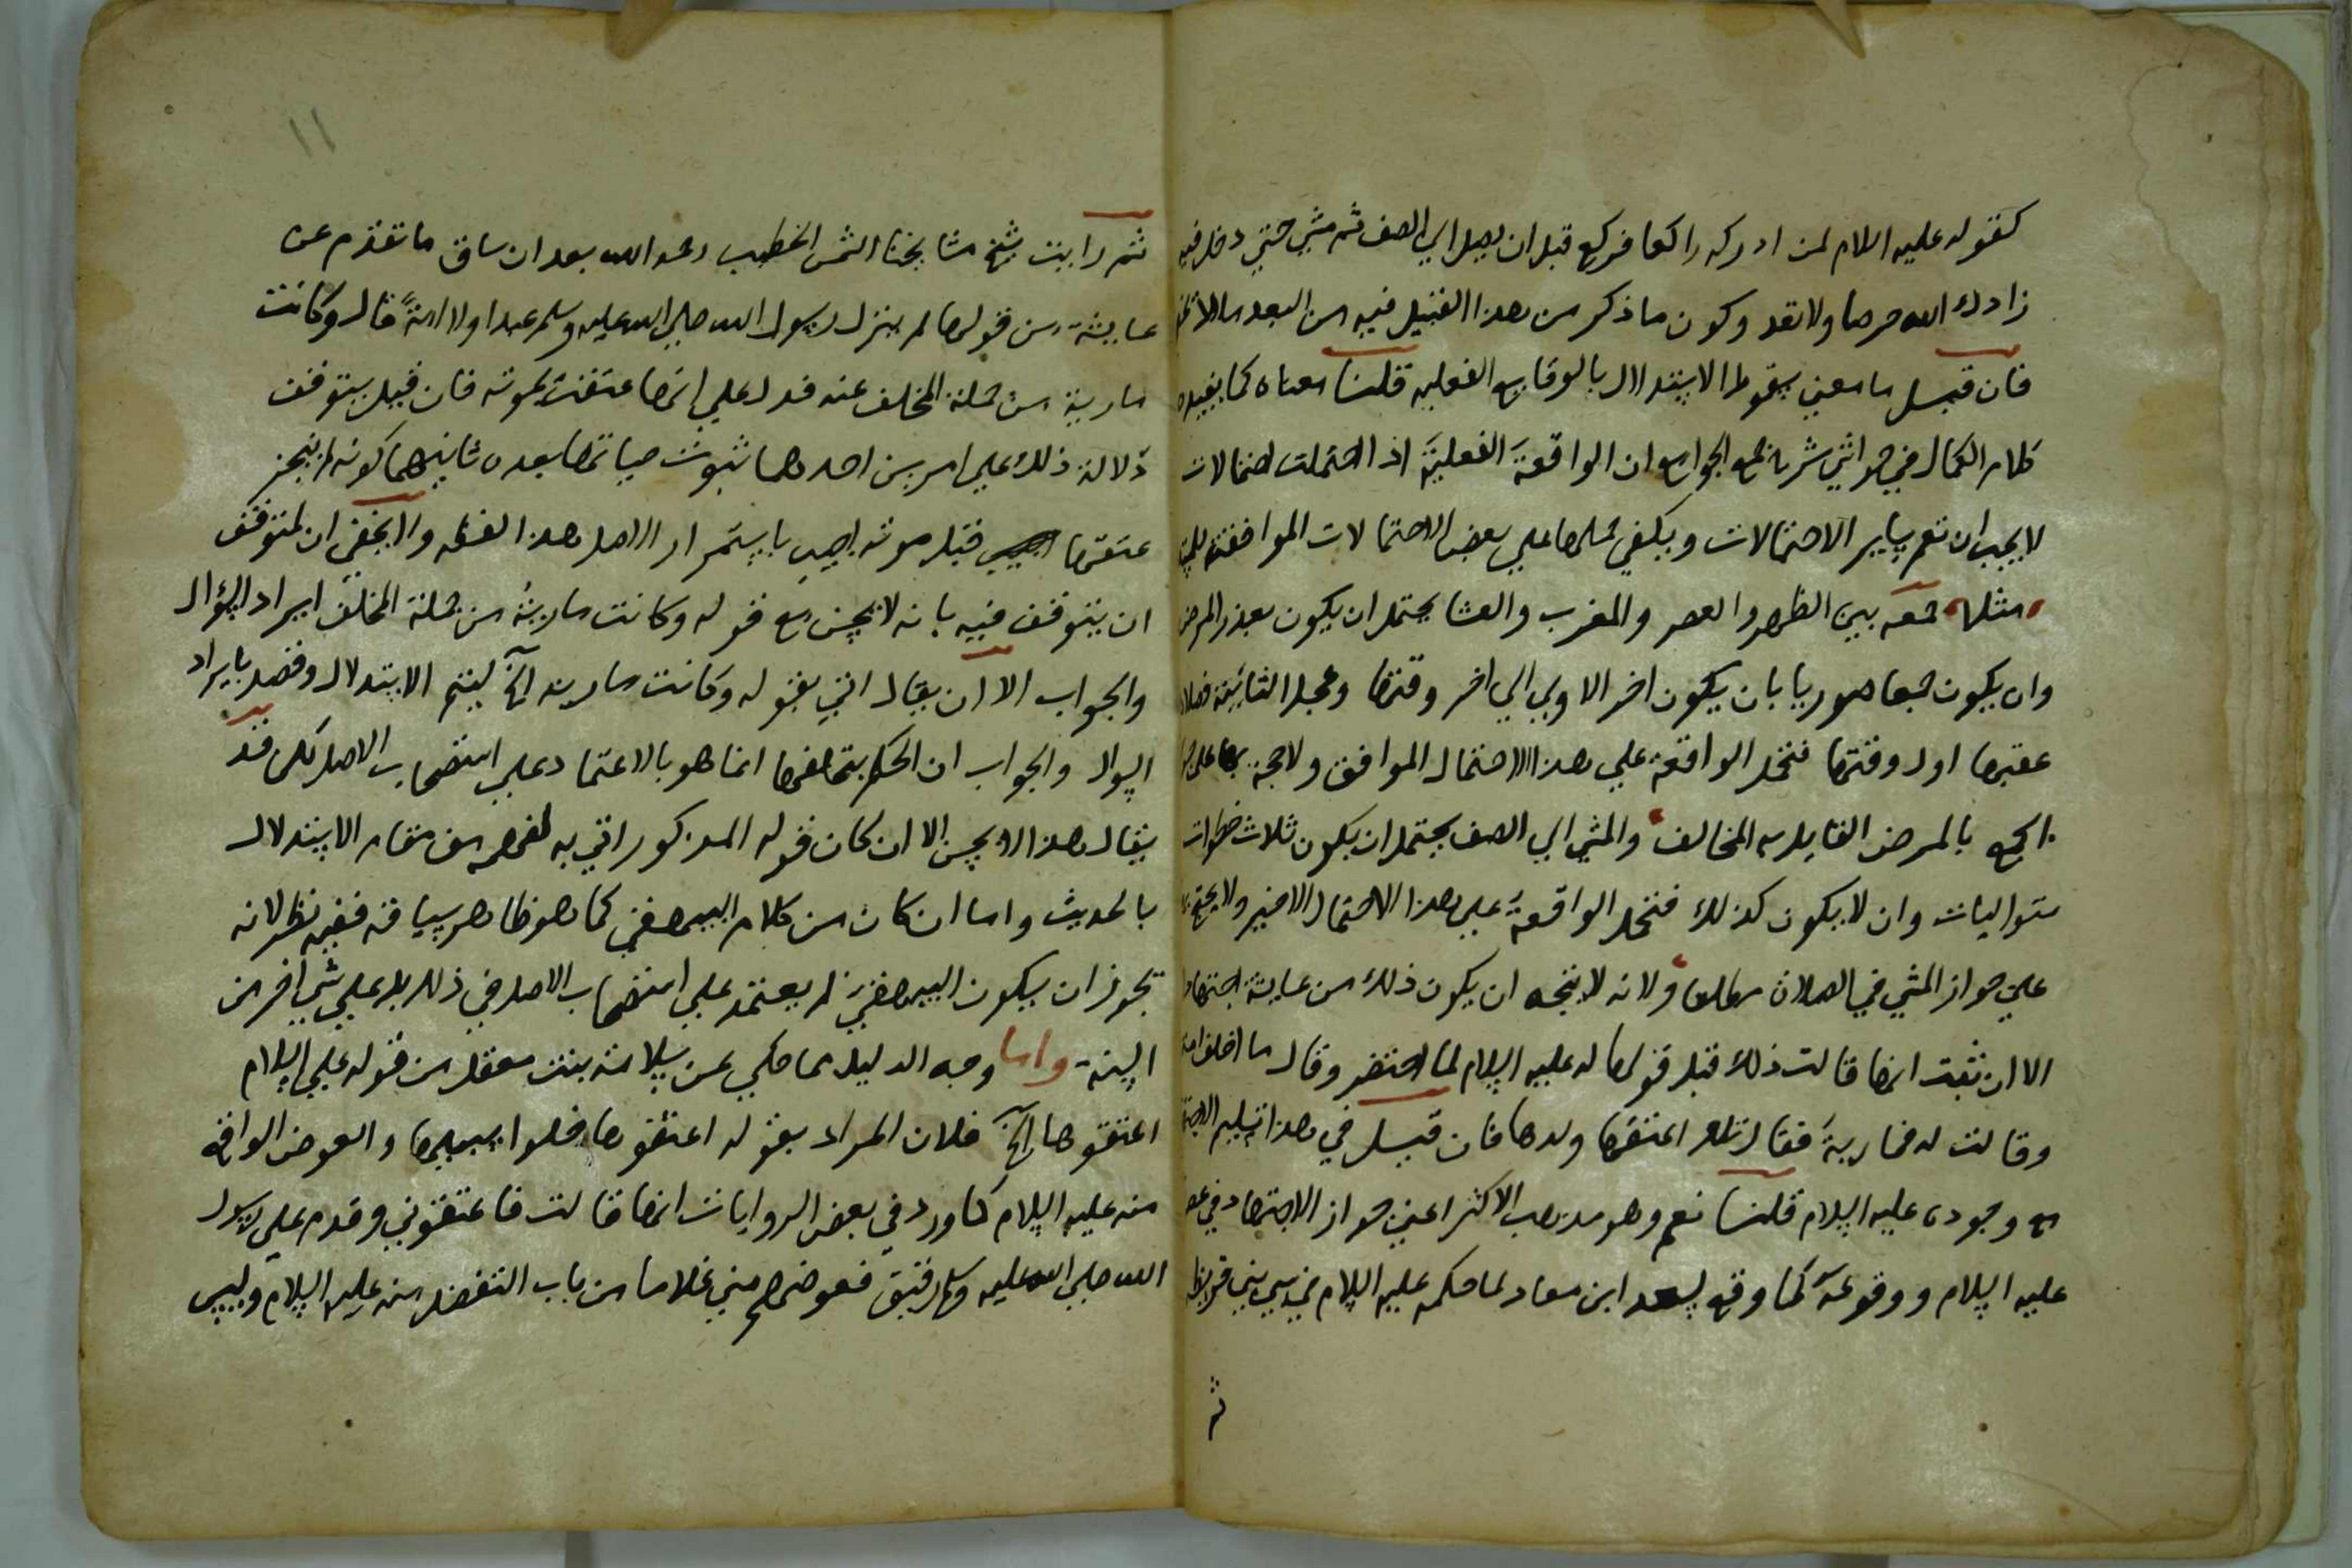 كقوله عليه السلام لمن ادركه راكعا فركع قبل ان يصل الي الصف ثم مشي حتي دخل فيه
زادك الله حرصا ولا تعد وكون ما ذكر من هذا القبيل فيه من البعد ما لا
فان قيل ما معني سقوط الاستدلال بالوقايع الفعليه قلنا معناه كما يفيده
كلام الكمال في حواشي شرح جمع الجوامع ان الواقعة الفعلية اذا احتملت احتمالات
لا يجب ان تعم ساير الاحتمالات ويكفي حملها علي بعض الاحتمالات الموافقة
مثلا جمعه بين الظهر والعصر والمغرب والعشا يحتمل ان يكون بعذر المرض
وان يكون جمعا صوريا بان يكون اخر الاولي الي اخر وقتها وعجل الثانية
عقبها اول وقتها فتحمل الواقعة علي هذا الاحتمال الموافق ولا حجة بها علي
الجمع بالمرض القايل به المخالف والمشي الي الصف يحتمل ان يكون ثلاث خطوات
متواليات وان لا يكون كذلك فتحمل الواقعة علي هذا الاحتمال الاخير ولا يحتج
علي جواز المشي في الصلاة مطلقا ولانه لا يتجه ان يكون ذلك من عايشة اجتهادا
الا ان ثبت انها قالت ذلك قبل قولها له عليه السلام لما احتضر وقال ما اخلف
وقالت له فمارية فقال تلك اعتقها ولدها فان قيل في هذا تسليم
مع وجوده عليه السلام قلنا نعم وهو مذهب الاكثر اعني جواز الاجتهاد في
عليه السلام ووقوعه كما وقع لسعد ابن معاد لما حكمه عليه السلام في سبي بني قريظه
ثم
١١
ثم رايت شيخ مشايخنا الشمس الخطيب رحمه الله بعد ان ساق ما تقدم عن
عايشة من قولها لم يترك رسول الله صلي الله عليه وسلم عبدا ولا امة قال وكانت
مارية من جملة المخلف عنه فدل علي انها عتقت بموته فان قيل يتوقف
دلالة ذلك علي امرين احدهما ثبوت حياتها بعده ثانيهما كونه لم ينجز
عتقها قبل موته اجيب باستمرار الاصل هذا لفظه ولا يخفي ان لمتوقف
ان يتوقف فيه بانه لا يحسن مع قوله وكانت مارية من جملة المخلف ايراد السؤال
والجواب الا ان يقال اني بقوله وكانت مارية الخ ليتم الاستدلال وقصد بايراد
السوال والجواب ان الحكم بتخلفها انما هو بالاعتماد علي استصحاب الاصل لكن قد
يقال هذا لا يحسن الا ان كان قوله المذكور اتي به لغرضه من تمام الاستدلال
بالحديث واما ان كان من كلام البيهقي كما هو ظاهر سياقه ففيه نظر لانه
يجوز ان يكون البيهقي لم يعتمد علي استصحاب الاصل في ذلك بل علي شي اخر من
السنة واما وجه الدليل مما حكي عن سلامة بنت معقل من قوله عليه السلام
اعتقوها الخ فلان المراد بقوله اعتقوها خلوا سبيلها والعوض الواقع
منه عليه السلام كما ورد في بعض الروايات انها قالت فاعتقوني وقدم علي رسول
الله صلي الله عليه وسلم رقيق فعوضهم مني غلاما من باب التفضل منه عليه السلام وليس